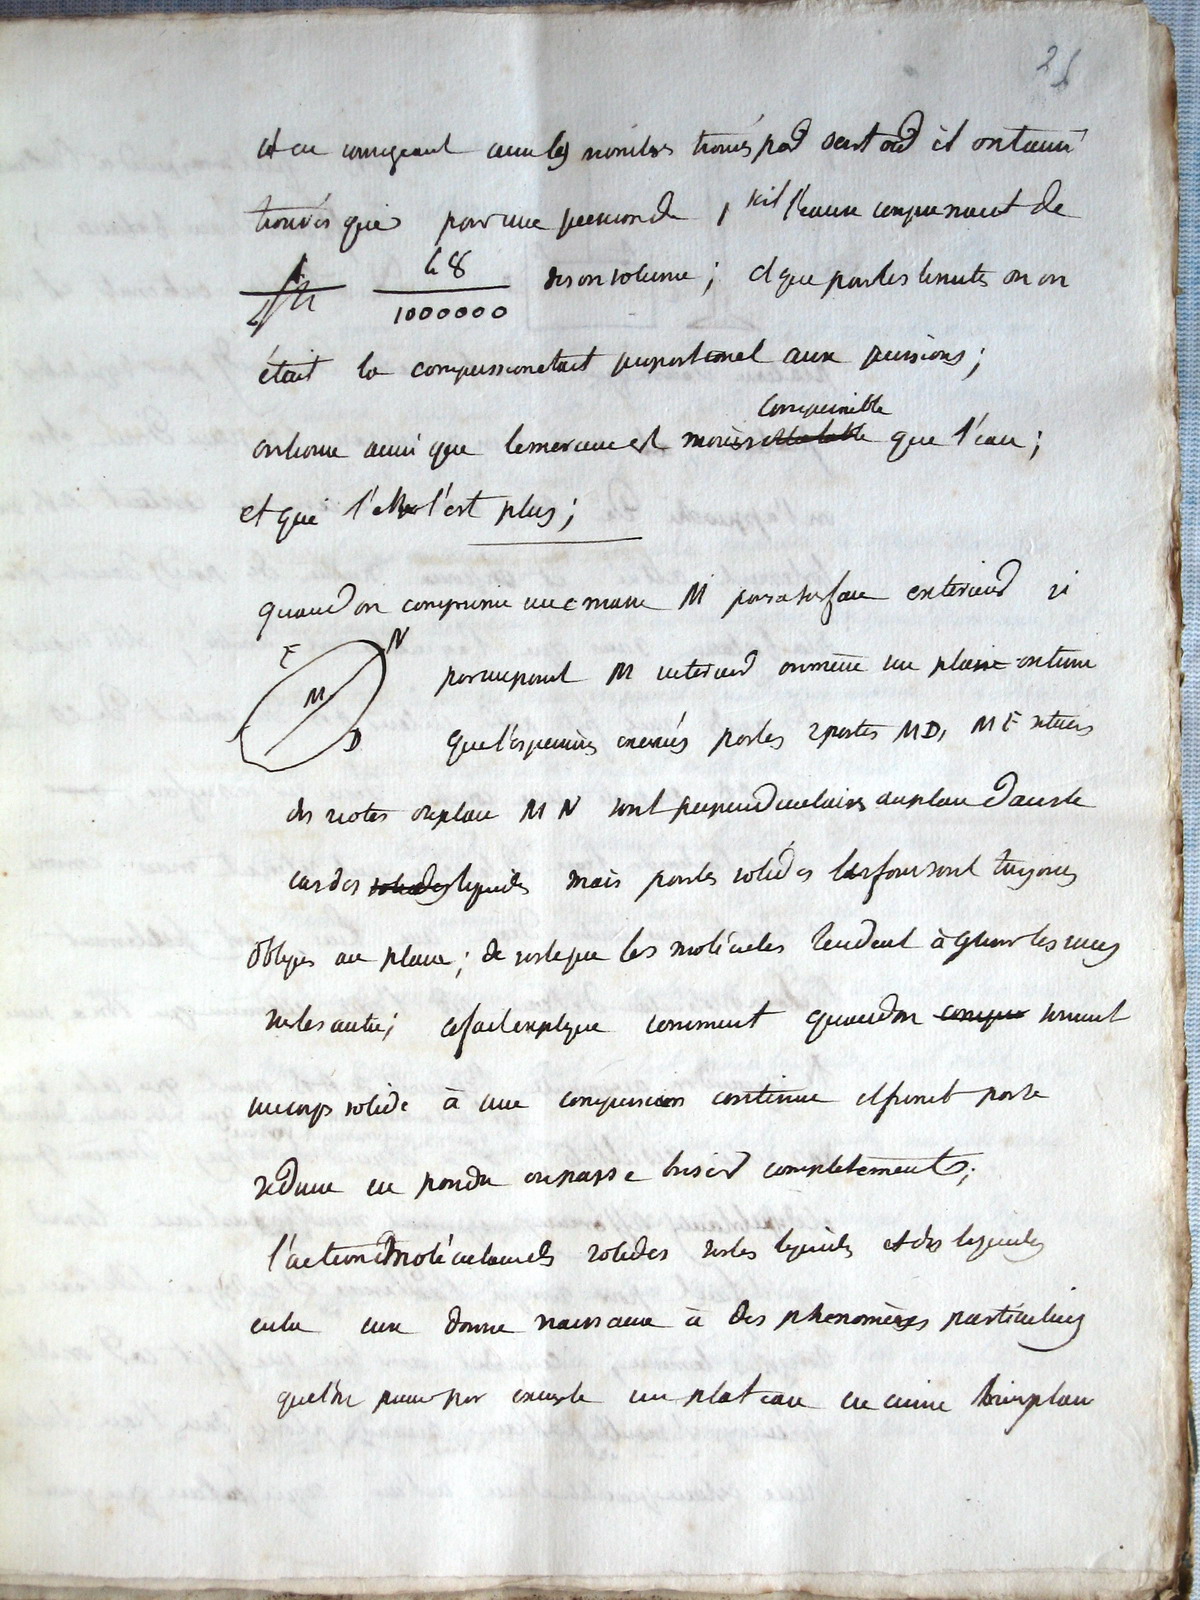 25
et en corrigeant ainsi les nombres trouvés par Oerstoed il ont ainsi
trouvés que pour une pression de 1 kil l'eau se comprenait de
48
1000000
de son volume; et que par les limites on on
était la compression etait proportionel aux pressions;
compressible
on trouve aussi que le mercure est moins que l'eau;
et que l'ether l'est plus;
quand on comprime une masse M par sa surface exterieur si
E N
M
D
par un point M interieur on mène un plan on trouve
que les pressions exercés par les 2 parties MD, ME situés
des côtés du plan MN sont perpendiculaires au plan dans le
cas des solides liquides mais pour les solides les forces sont toujours
obliques au plan; de sorte que les molécules tendent à glisser les unes
sur les autres; ce fait explique comment quand on soumet
un corps solide à une compression continue il finit par se
reduire en poudre ou par se briser completement;
l'action moléculaire des solides sur les liquides et des liquides
entre eux donne naissance à des phenomènes particuliers
que l'on prenne par exemple un plateau en cuivre bien plan